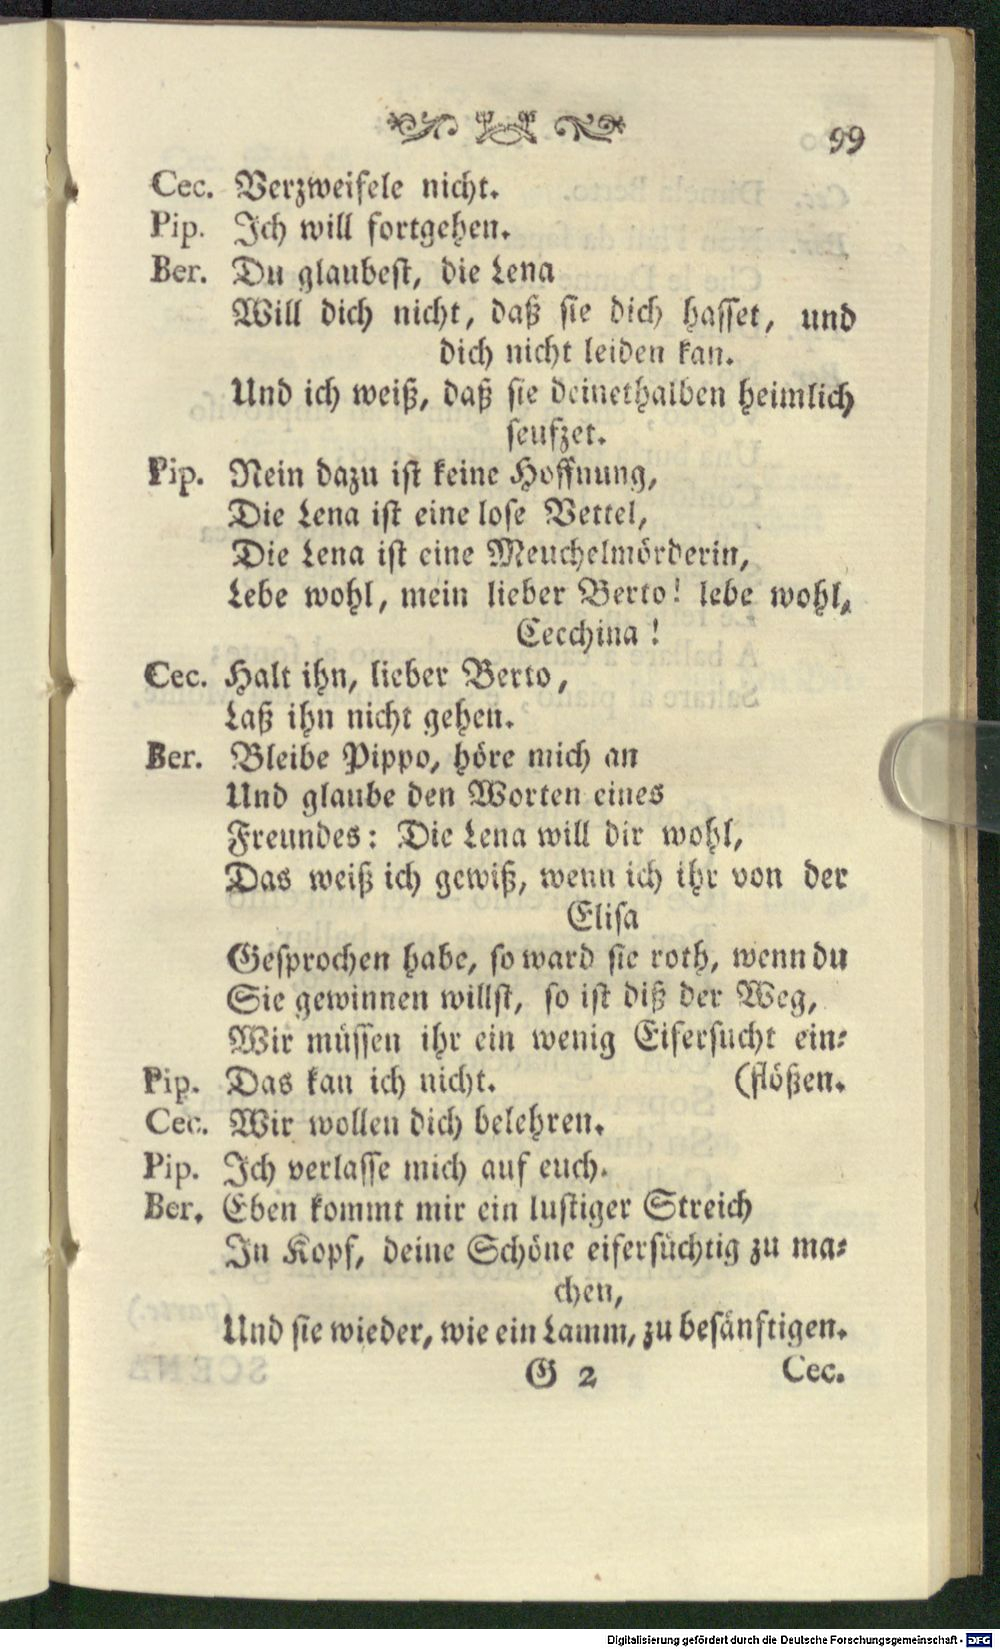 99
Cec. Verzweifele nicht.
Pip. Ich will fortgehen.
Ber. Du glaubest, die Lena
Will dich nicht, daß sie dich hasset, und
dich nicht leiden kan.
Und ich weiß, daß sie deinethalben heimlich
seufzet.
Pip. Nein dazu ist keine Hoffnung,
Die Lena ist eine lose Vettel,
Die Lena ist eine Meuchelmörderin,
Lebe wohl, mein lieber Berto! lebe wohl,
Cecchina!
Cec. Halt ihn, lieber Berto,
Laß ihn nicht gehen.
Ber. Bleibe Pippo, höre mich an
Und glaube den Worten eines
Freundes: Die Lena will dir wohl,
Das weiß ich gewiß, wenn ich ihr von der
Elisa
Gesprochen habe, so ward sie roth, wenn du
Sie gewinnen willst, so ist diß der Weg,
Wir müssen ihr ein wenig Eifersucht ein-
Pip. Das kan ich nicht. (flößen.
Cec. Wir wollen dich belehren.
Pip. Ich verlasse mich auf euch.
Ber. Eben kommt mir ein lustiger Streich
In Kopf, deine Schöne eifersüchtig zu ma-
chen,
Und sie wieder, wie ein Lamm, zu besänftigen.
G 2 Cec.
Digitalisierung gefördert durch die Deutsche Forschungsgemeinschaft - DFG